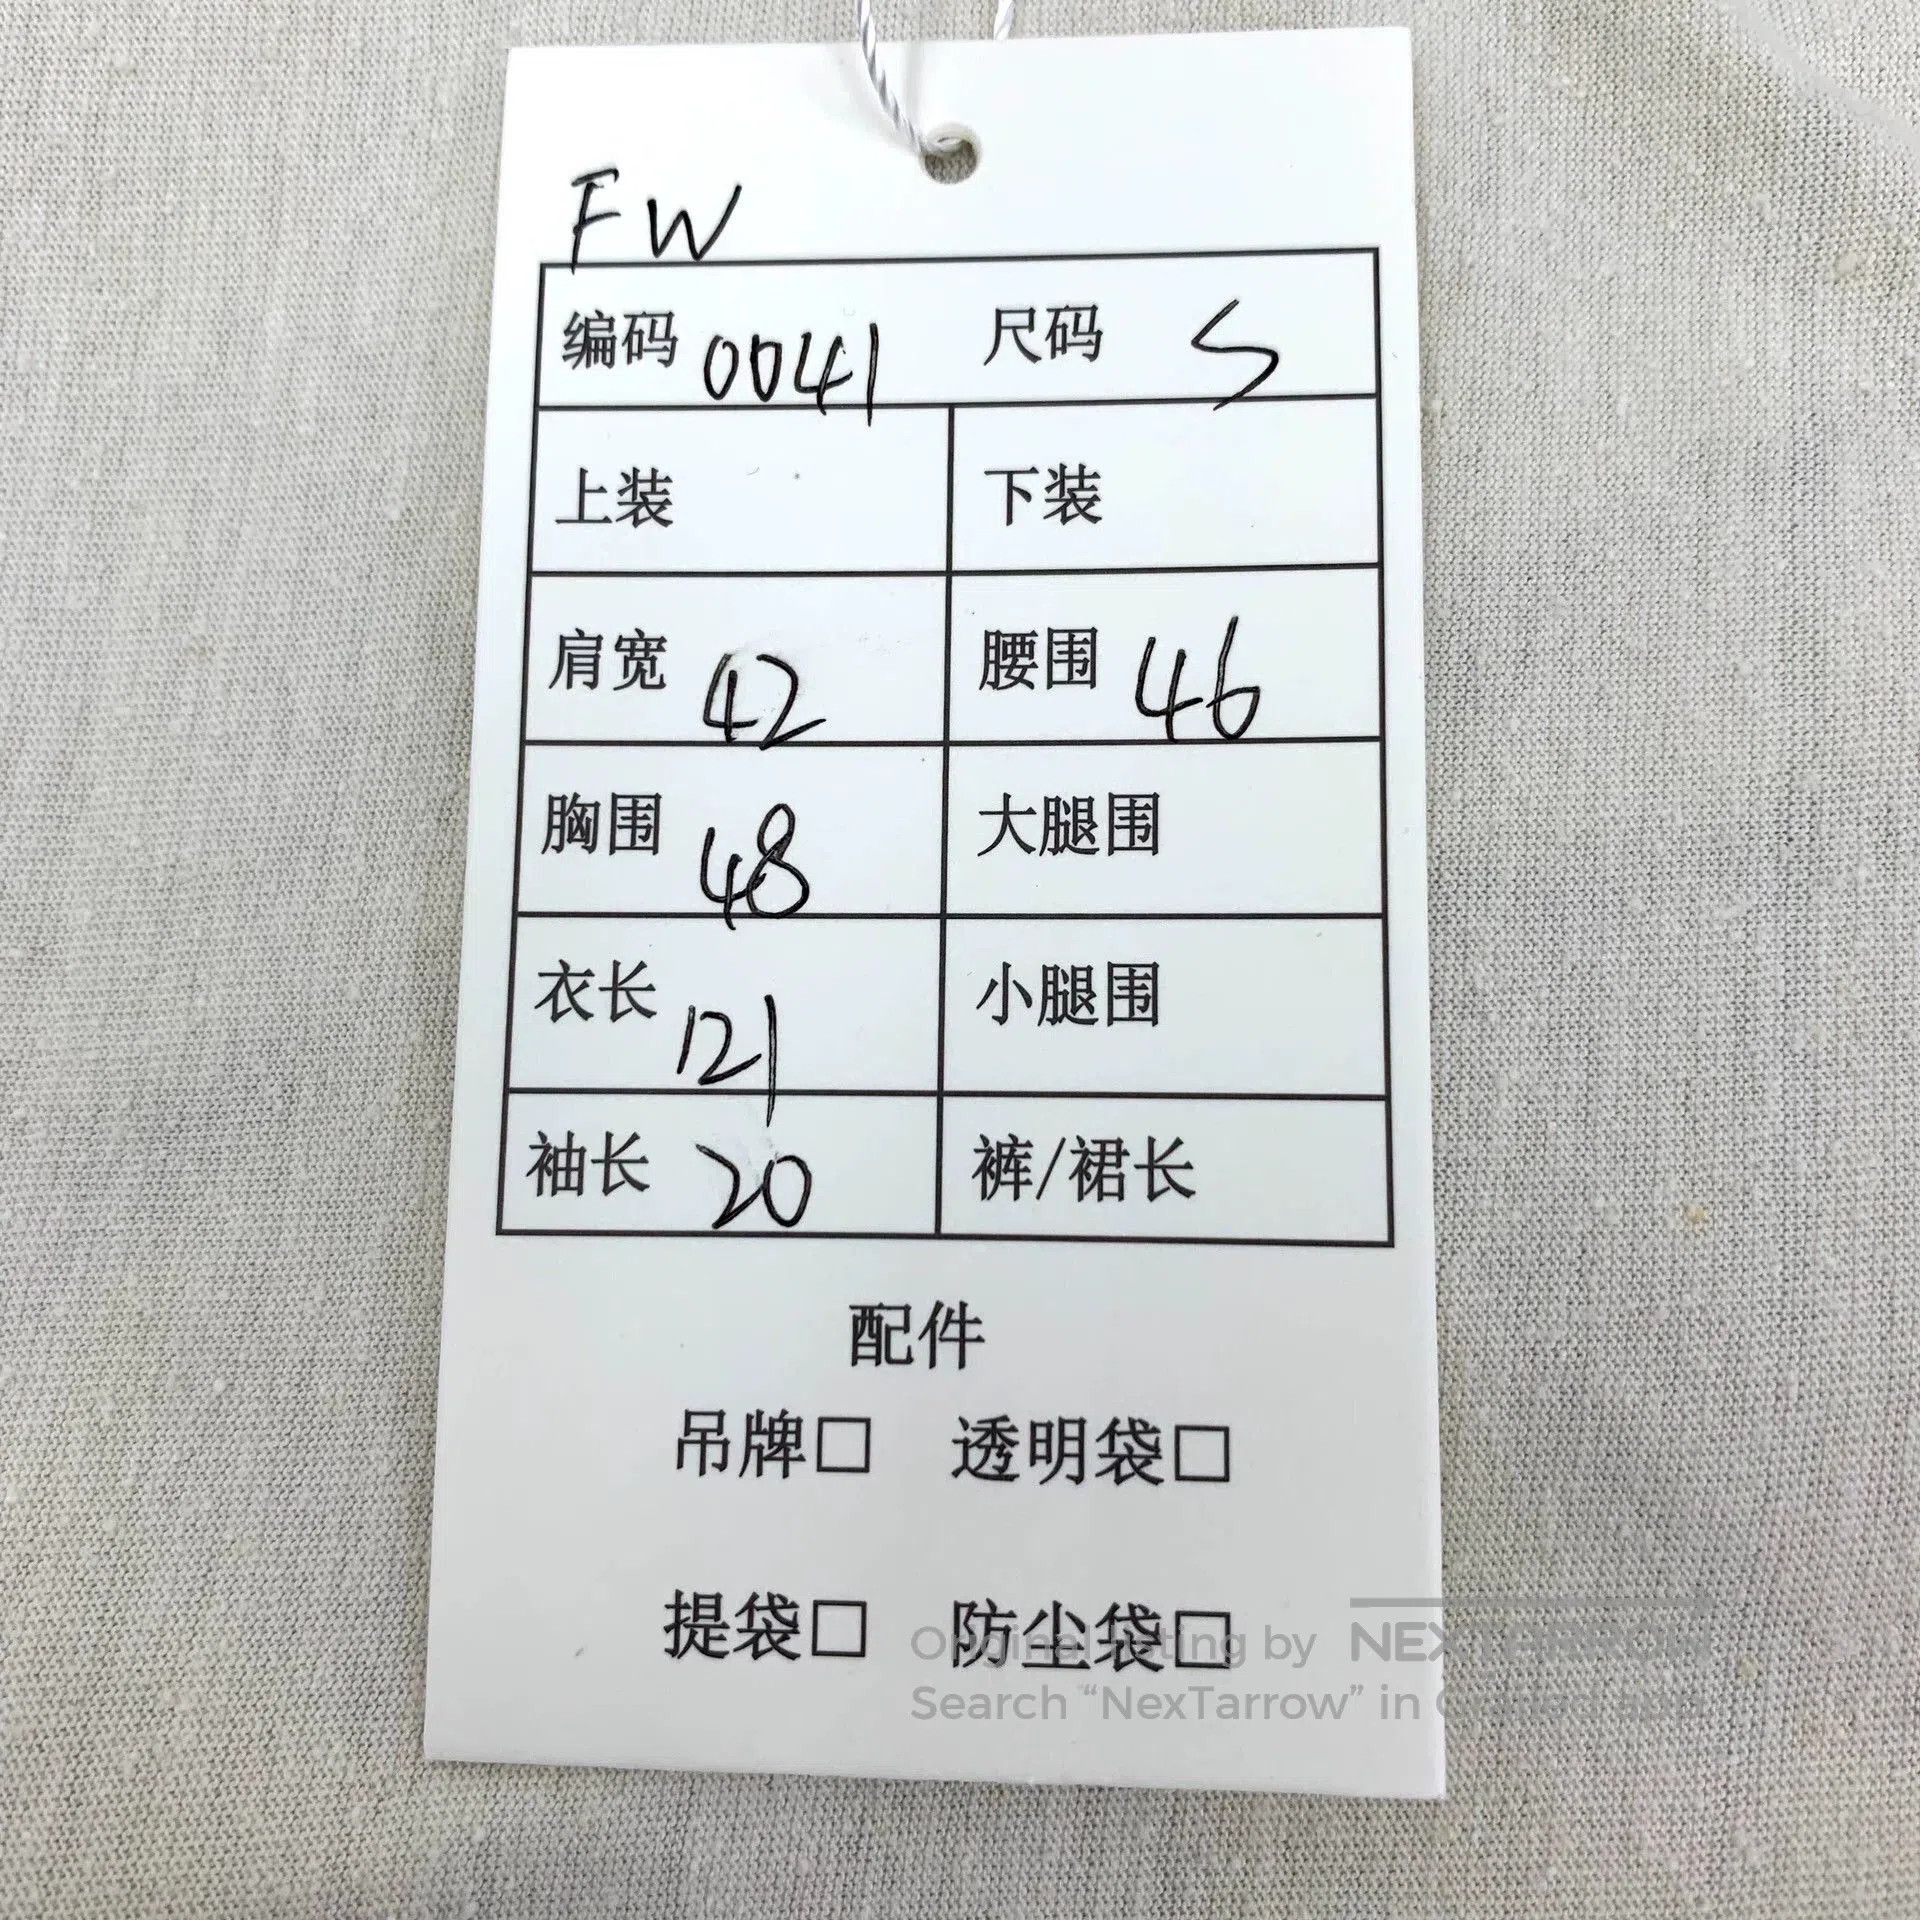 FW
编码 0041 尺码 S
上装 下装
肩宽 42 腰围 46
胸围 48 大腿围
衣长 121 小腿围
袖长 20 裤/裙长
配件
吊牌□ 透明袋□
提袋□ 防尘袋□
Original listing by NEXTARROW
Search “NexTarrow” in Grailed app